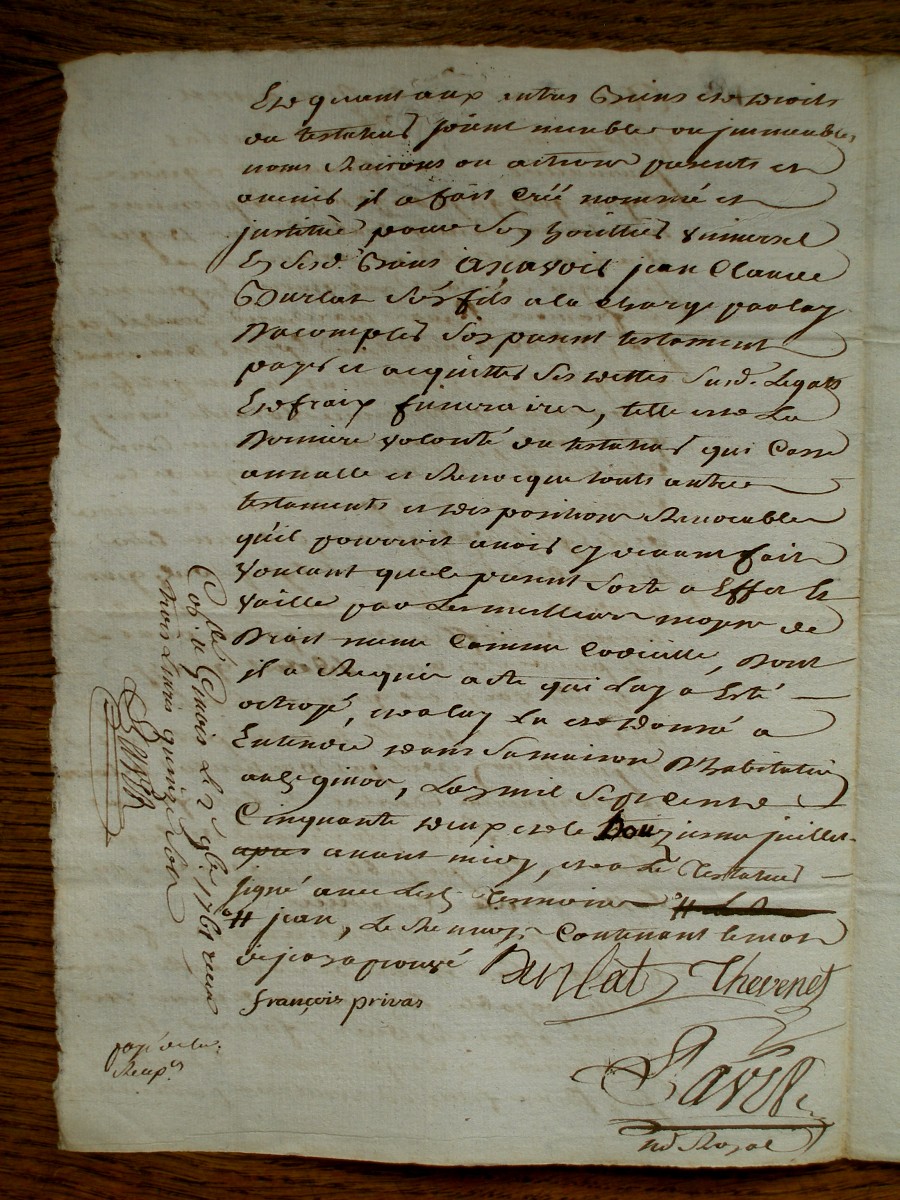 Et quant aux autres Biens et droits
du testateur soient meubles ou jmmeubles
noms Raisons ou actions presents et
avenir il a fait créé nommé et
jnstitué pour son héritier universel
En sesd. Biens asavoir jean Claude
Burlat son fils a la charge par luy
Dacomplir son present testament
payer et acquitter ses dettes susd. Legats
Et frais funeraires, telle est La
Derniere volonté du testateur qui Casse
annulle et Revocque touts autres
testaments et dispositions Revocables
qu'il pourroit avoir cy devant fait
Voulant que le present sorte a Effet et
vaille par Les meilleurs moyens de
Droit meme Comme Codicille, Dont
il a Requis acte qui Luy a Eté
octroyé, et a luy Lu et donné a
Entendre dans sa maison D'habitation
Lan mil sept cent
Cinquante deux et le Douzieme juillet
apres avant midy, et a Le Testateur
signé avec Lesd. Temoins
# jean, Le Renvoy Contenant le mot
de jean aprouvé Burlat Thevenet
françois privas
Ravier
nore Royal
Col. a Le 2e 9bre 1761 receu
trois Livres quinze sols
payé de la